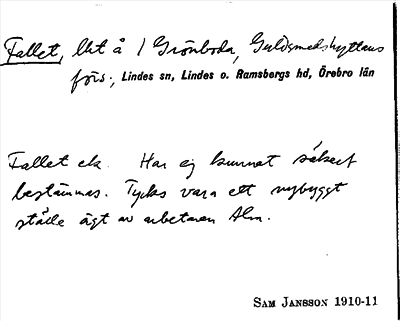 Fallet, lht å 1 Grönboda, Guldsmedshyttans
förs., Lindes sn, Lindes o. Ramsbergs hd, Örebro län
Fallet ek. Har ej kunnat säkert
bestämmas. Tycks vara ett nybyggt
ställe ägt av arbetaren Alm.
SAM JANSSON 1910-11